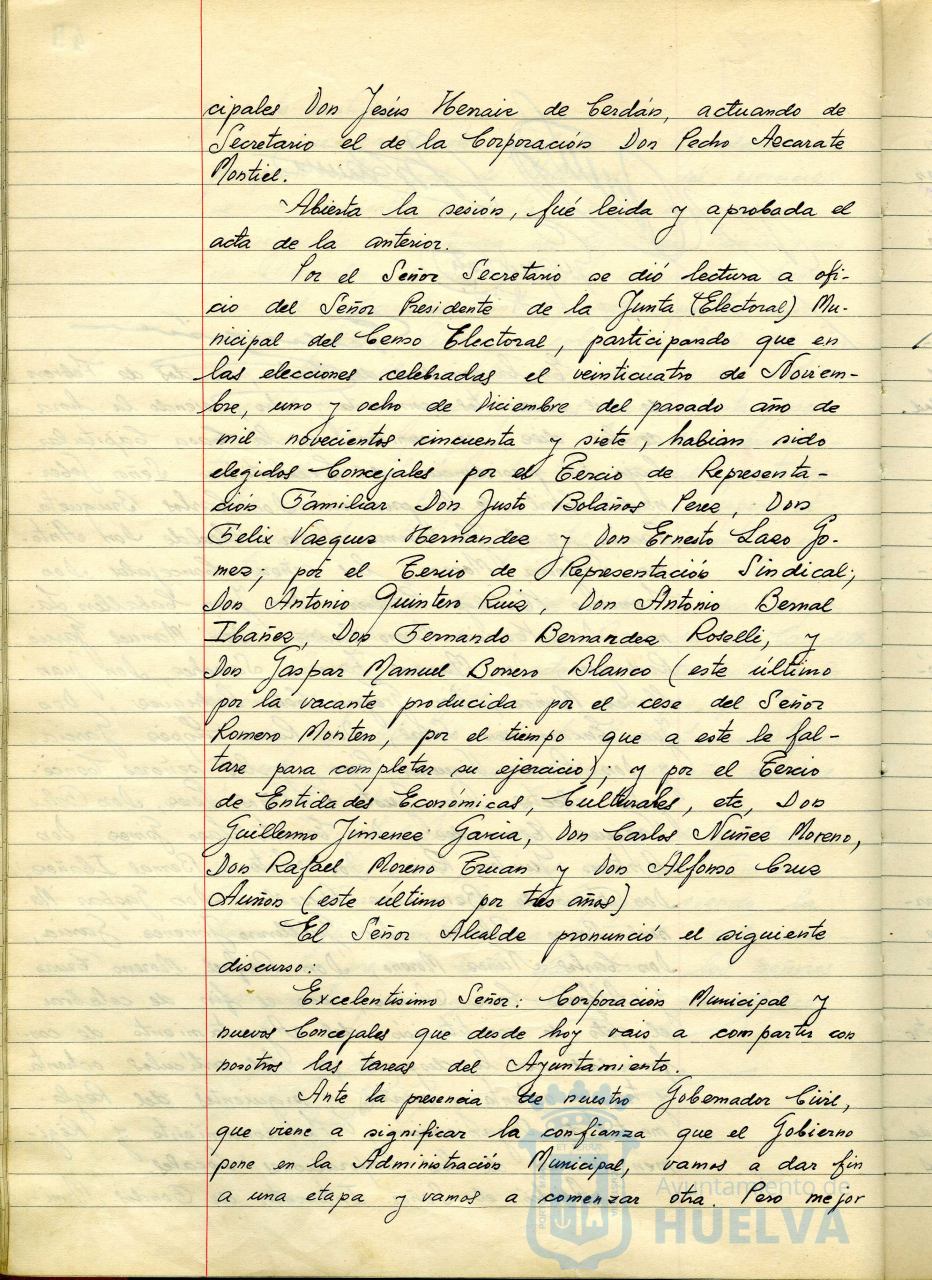 cipales Don Jesús Henaiz de Cerdán, actuando de
Secretario el de la Corporación Don Pedro Azcarate
Montiel.
Abierta la sesión, fué leida y aprobada el
acta de la anterior.
Por el Señor Secretario se dió lectura a ofi-
cio del Señor Presidente de la Junta (Electoral) Mu-
nicipal del Censo Electoral, participando que en
las elecciones celebradas el veinticuatro de Noviem-
bre, uno y ocho de Diciembre del pasado año de
mil novecientos cincuenta y siete, habian sido
elegidos Concejales por el Tercio de Representa-
ción Familiar Don Justo Bolaños Perez, Don
Felix Vazquez Hernandez y Don Ernesto Lazo Go-
mez; por el Tercio de Representación Sindical;
Don Antonio Quintero Ruiz, Don Antonio Bernal
Ibañez, Don Fernando Bernandez Roselli, y
Don Gaspar Manuel Borrero Blanco (este último
por la vacante producida por el cese del Señor
Romero Montero, por el tiempo que a este le fal-
tare para completar su ejercicio); y por el Tercio
de Entidades Económicas, Culturales, etc, Don
Guillermo Jimenez Garcia, Don Carlos Nuñez Moreno,
Don Rafael Moreno Truan y Don Alfonso Cruz
Auñon (este último por tres años)
El Señor Alcalde pronunció el siguiente
discurso:
Excelentisimo Señor: Corporación Municipal y
nuevos Concejales que desde hoy vais a compartir con
nosotros las tareas del Ayuntamiento.
Ante la presencia de nuestro Gobernador Civil,
que viene a significar la confianza que el Gobierno
pone en la Administración Municipal, vamos a dar fin
a una etapa y vamos a comenzar otra. Pero mejor
Ayuntamiento de
HUELVA